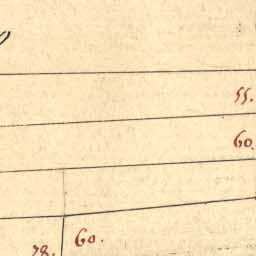 55.
60.
60.
78.